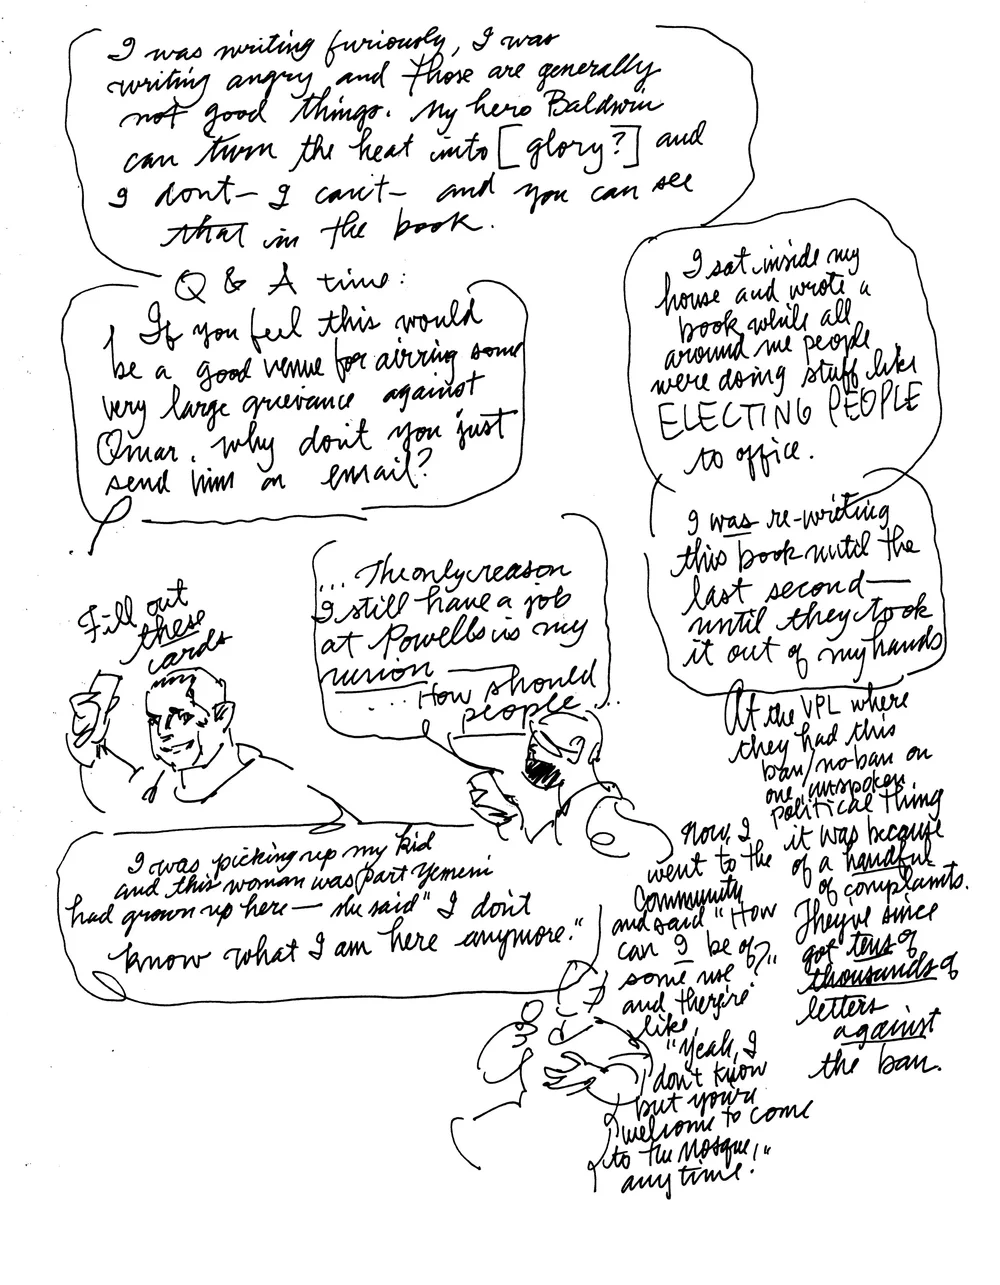 I was writing furiously, I was
writing angry and those are generally
not good things. My hero Baldwin
can turn the heat into [glory?] and
I dont— I can't— and you can see
that in the book.
Q & A time:
If you feel this would
be a good venue for airring some
very large grievance against
Omar, why don't you just
send him an email?
I sat inside my
house and wrote a
book while all
around me people
were doing stuff like
ELECTING PEOPLE
to office.
I was re-writing
this book until the
last second—
until they took
it out of my hands
Fill out
these
cards
... The only reason
I still have a job
at Powells is my
union —
.... How should
people ...
I was picking up my kid
and this woman was part Yemeni
had grown up here— she said "I don't
know what I am here anymore."
At the VPL where
they had this
ban/no-ban on
one unspoken
political thing
it was because
of a handful
of complaints.
They've since
got tens of
thousands of
letters
against
the ban.
Now, I
went to the
Community
and said "How
can I be of
some use?"
and they're
like,
"Yeah, I
don't know
but you're
welcome to come
to the Mosque,"
any time."